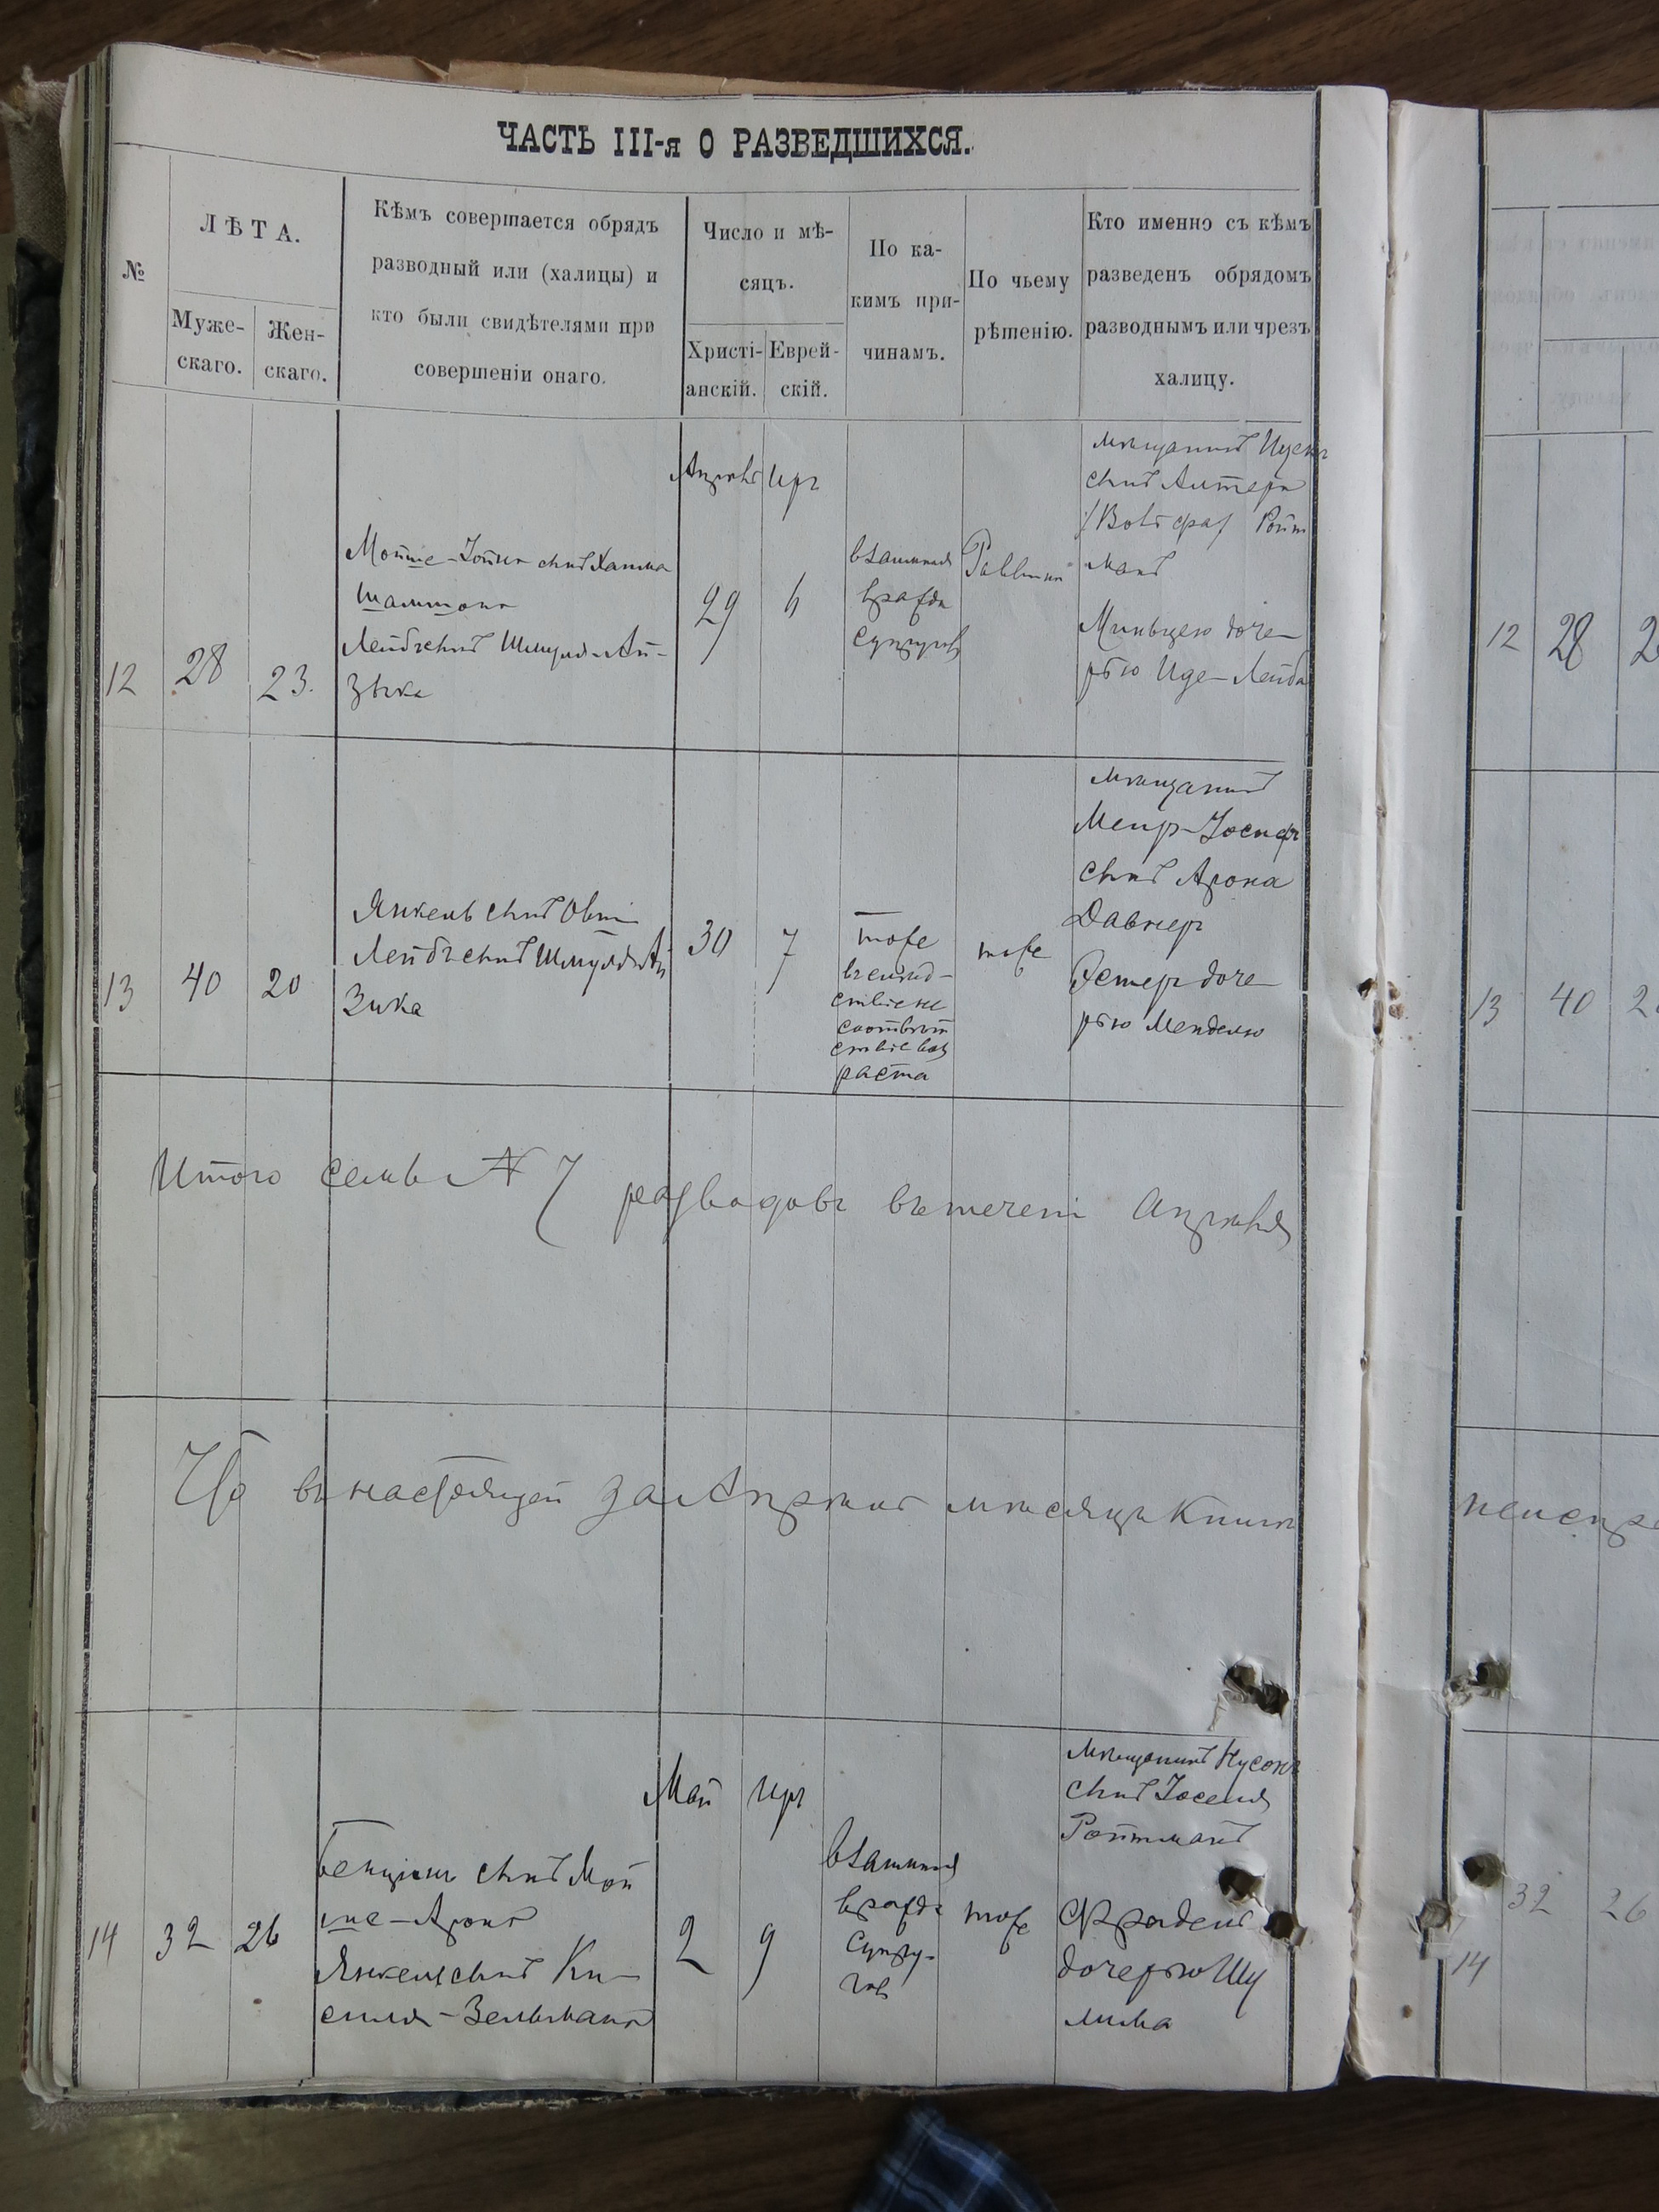 ЧАСТЬ III-я О РАЗВЕДШИХСЯ.
№
ЛѢТА.
Муже-
скаго.
Жен-
скаго.
Кѣмъ совершается обрядъ
разводный или (халицы) и
кто были свидѣтелями при
совершеніи онаго.
Число и мѣ-
сяцъ.
Христі-
анскій.
Еврей-
скій.
По ка-
кимъ при-
чинамъ.
По чьему
рѣшенію.
Кто именно съ кѣмъ
разведенъ обрядомъ
разводнымъ или чрезъ
халицу.
12
28
23.
Мойше-Іойна сынъ Хаима
Лейбъ сынъ Шмуля-Ай-
зыка
Апрѣль
Иръ
29
6
взаимная
вражда
супруговъ
Раввина
мѣщанинъ
сынъ Алтера
Ройт
манъ
доче-
рью Иде-Лейба
12
28
13
40
20
Янкель сынъ
Лейбъ сынъ Шмуля Ай
зика
30
7
тоже
вслѣд-
ствіе не
соотвѣт
ствіе воз
раста
тоже
мѣщанинъ
Меир-Іосифъ
сынъ Арона
Давнеръ
Эстеръ доче-
рью Менделю
13
40
Итого семь № 7 разводовъ въ теченіи Апрѣля
Что въ настоящей за Апрѣль мѣсяцъ книги
14
32
26
Бенціонъ сынъ Мой
ше-Арона
Янкель сынъ Ки-
селя-Зельмана
Май
Иръ
2
9
взаимная
вражда
супру-
говъ
тоже
мѣщанинъ Нусонъ
сынъ Іоселя
Ройтманъ
Фрадель
дочерью Шу
лима
32
26
14